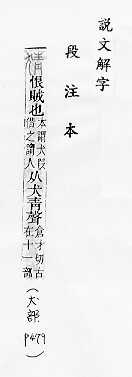 說文解字
段注本
猜恨賊也本謂犬叚借之謂人从犬青聲倉才切古在十一部(犬部P479)